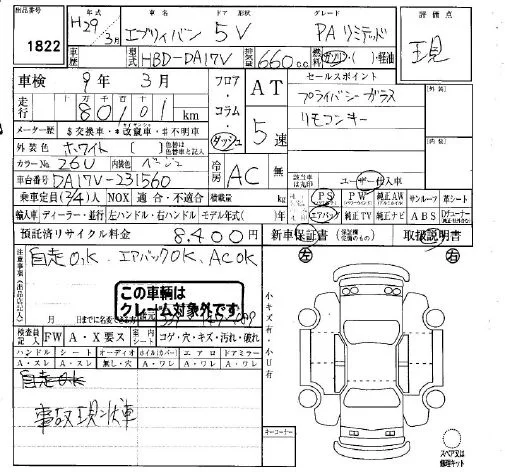 出品番号 1822
年式 H29年3月
車名 エブリィバン
ドア 形状 5V
グレード PA リミテッド
評価点 現
車歴
型式 HBD-DA17V
排気量 660cc
燃料 ガソリン・軽油
車検 9年3月
フロア・コラム・ダッシュ
AT 5速
セールスポイント
プライバシーガラス
リモコンキー
走行 80101km
メーター歴 $交換車・*改竄車・#不明車
外装色 ホワイト (色替車は色替車と記入)
カラーNo. 26U 内装色 ベージュ
冷房 AC 無
該当車は丸印 ユーザー仕入車
車台番号 DA17V-231560
乗車定員(2/4)人 NOX 適合・不適合 積載量 kg
PS PW 純正AW サンルーフ 革シート
輸入車 ディーラー・並行 左ハンドル・右ハンドル モデル年式( )年
エアバック 純正TV 純正ナビ ABS
預託済リサイクル料金 8,400円
新車保証書 取扱説明書
注意事項(出品店記入)
自走O,K. エアバックOK、ACOK
この車輌は
クレーム対象外です
月 日までに名変できる方
左 右
小キズ有・小U有
検査員記入 FW A・X要ス 室内シート コゲ・穴・キズ・汚れ・破れ
ハンドル シート オーディオ ホイル(カバー) エアロ ドアミラー
A・スレ A・スレ 無し・穴 A・ワレ A・ワレ A・ワレ
自走OK
事故現状車
キーコーナー
スペア又は
修理キット